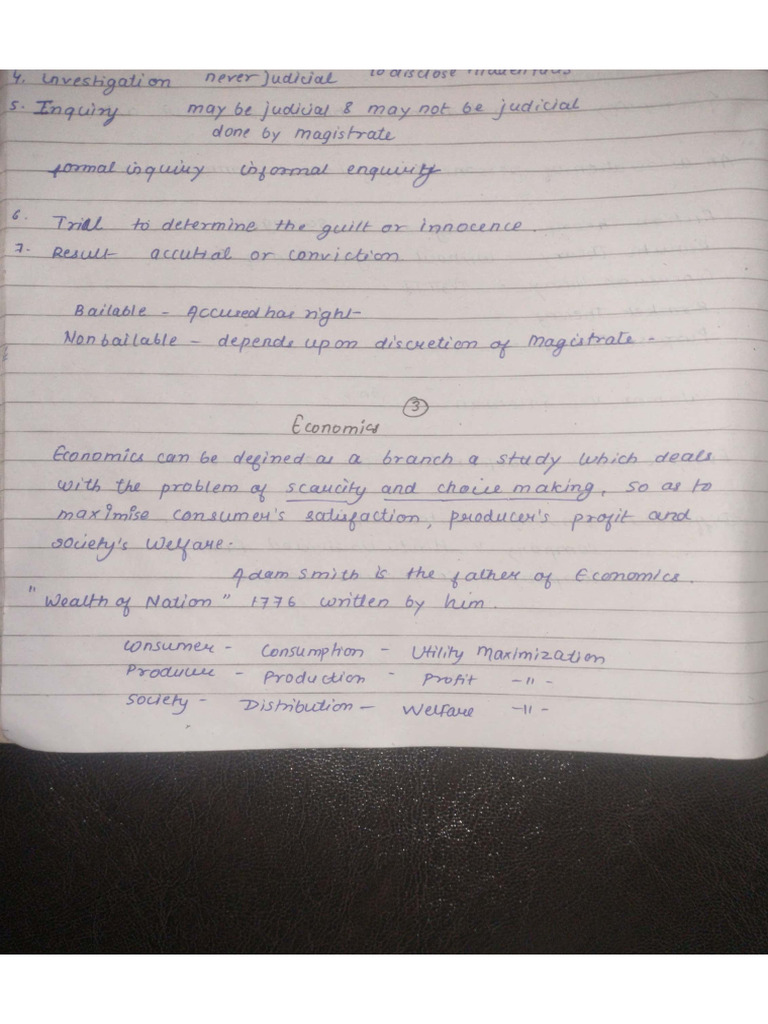 4. Investigation never judicial to disclose hidden facts
5. Inquiry may be judicial & may not be judicial
done by magistrate
formal inquiry informal enquirty
6. Trial to determine the guilt or innocence.
7. Result accutial or conviction
Bailable - Accused has right
Non bailable - depends upon discretion of Magistrate -
3
Economics
Economics can be defined as a branch a study which deals
with the problem of scaucity and choice making, so as to
maximise consumer's satisfaction, producer's profit and
society's welfare.
Adam Smith is the father of Economics.
"Wealth of Nation" 1776 written by him.
Consumer - Consumption - Utility Maximization
Producer - Production - Profit -11-
Society - Distribution - Welfare -11-